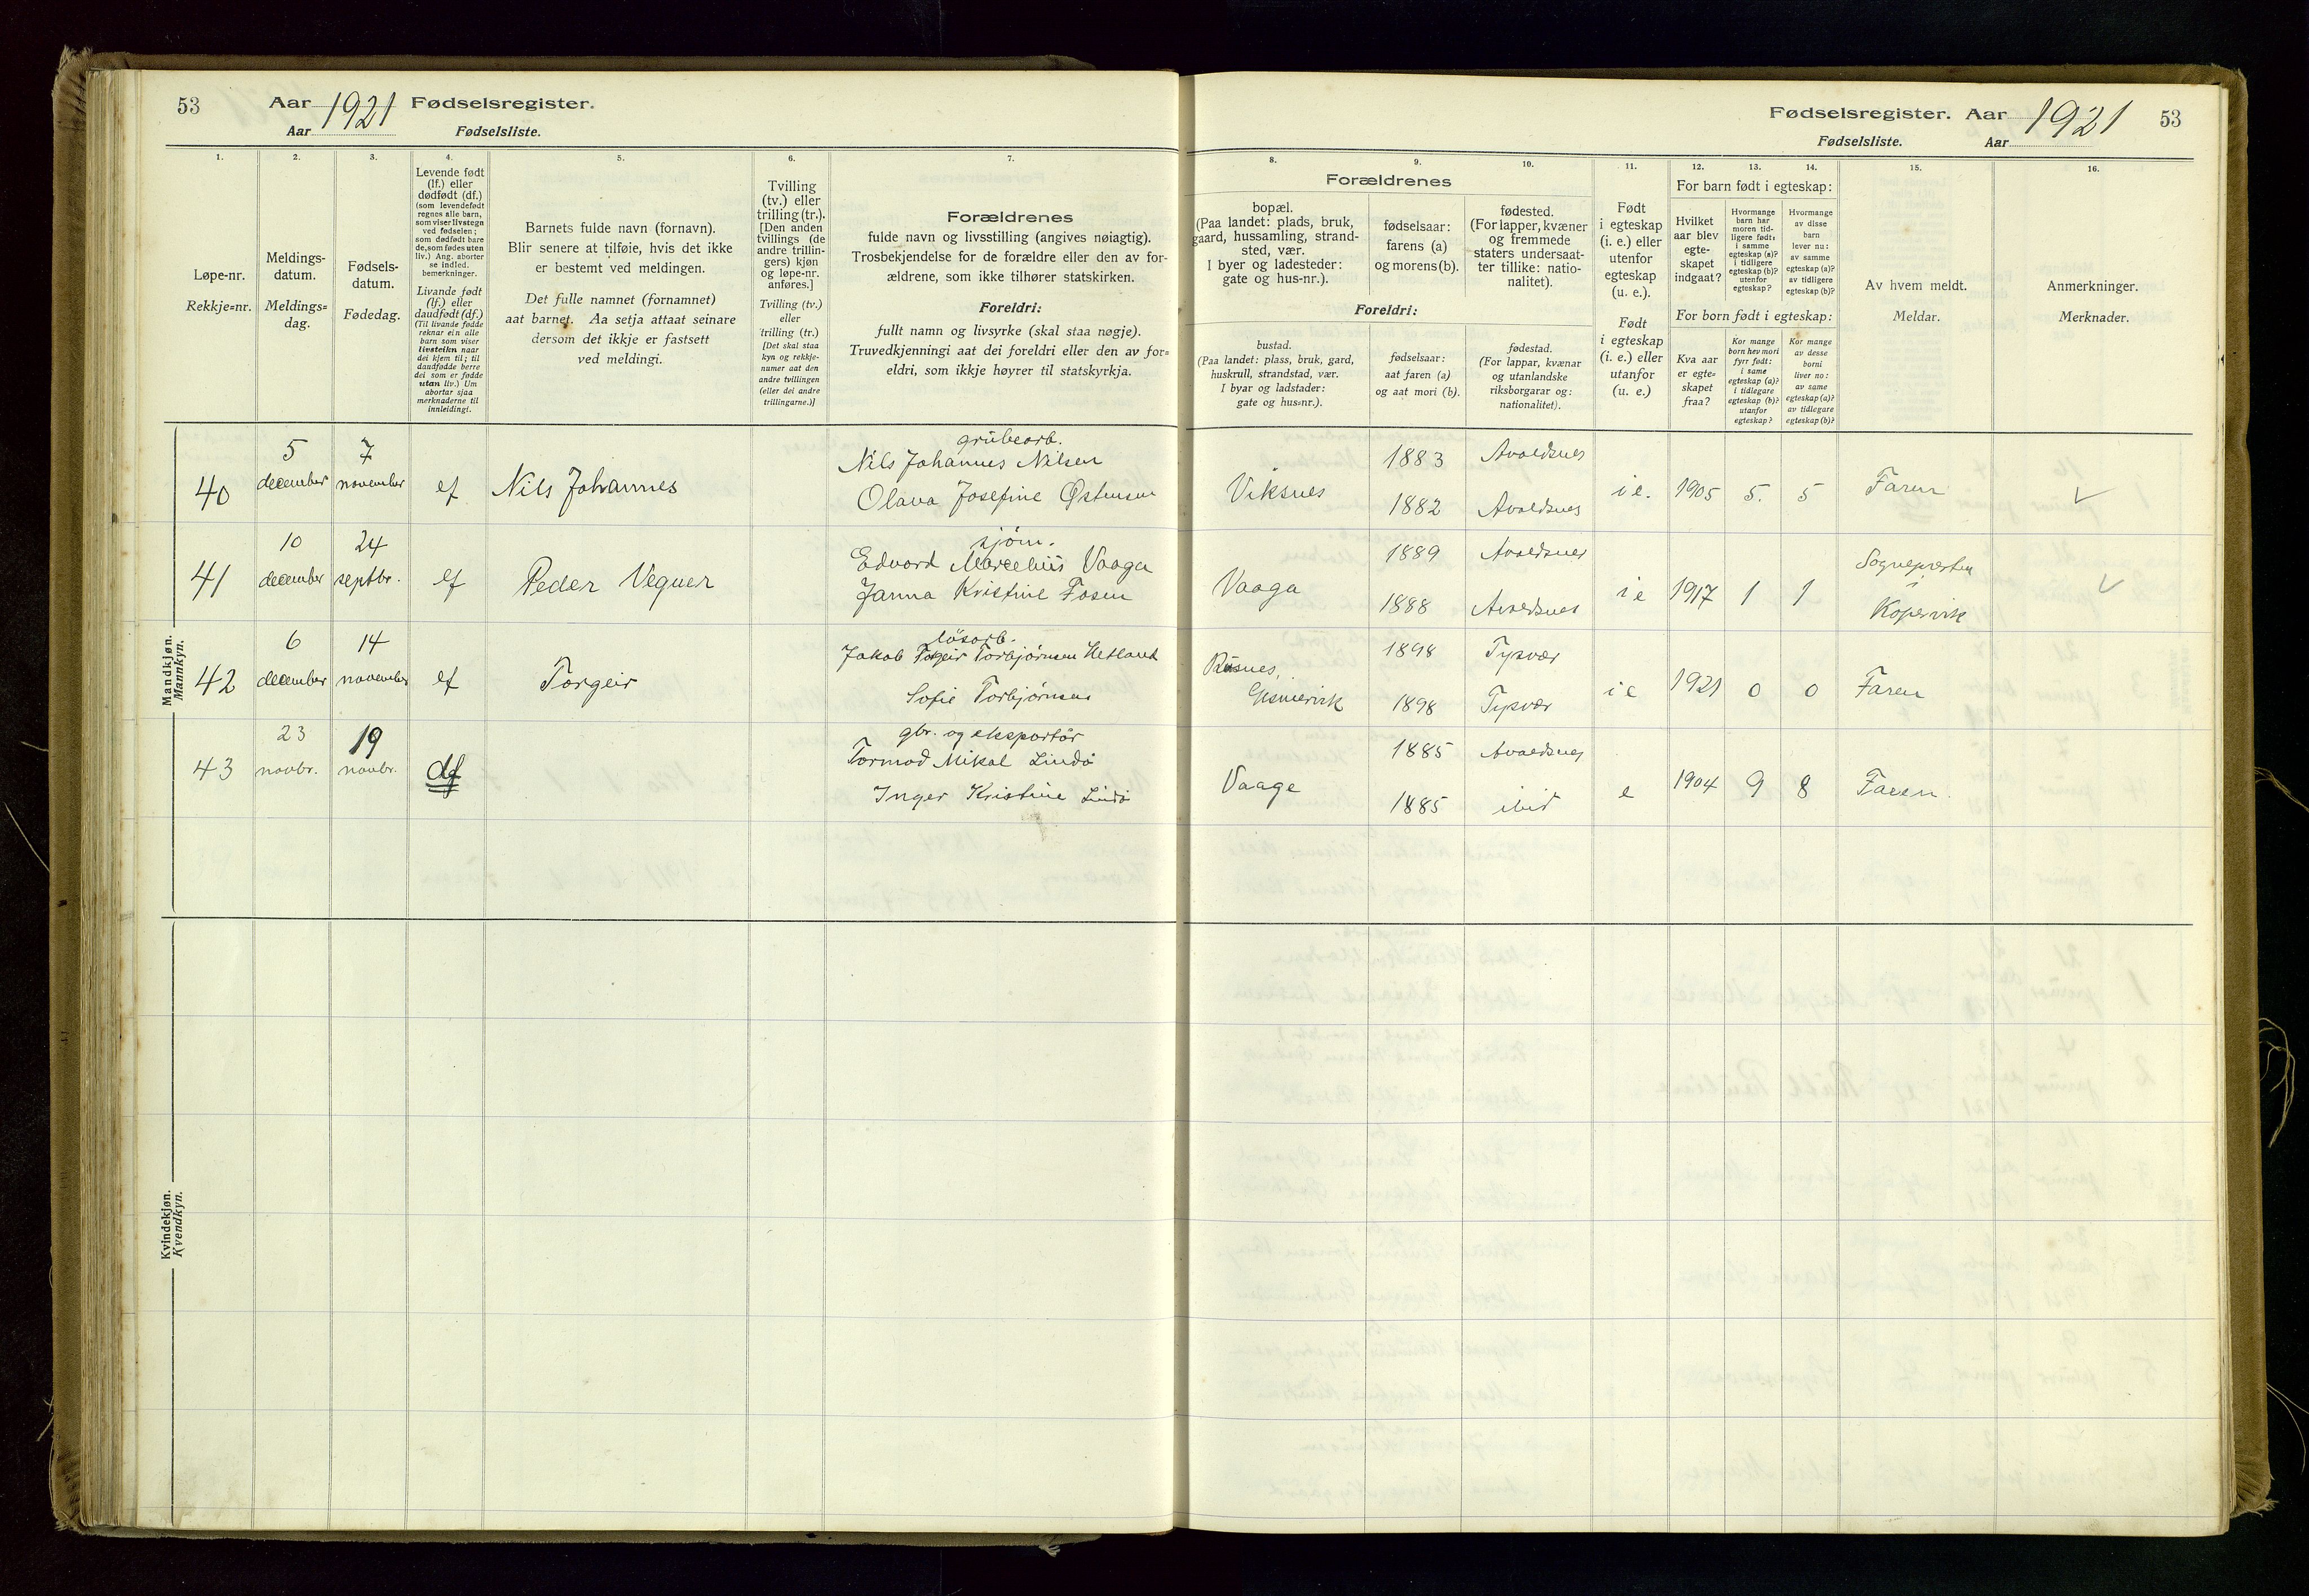 53 Aar 1921 Fødselsregister.
Aar Fødselsliste.
Fødselsregister. Aar 1921 53
Fødselsliste. Aar
1.
Løpe-nr.
Rekkje=nr.
2.
Meldings-
datum.
Meldings=
dag.
3.
Fødsels-
datum.
Fødedag.
4.
Levende født
(lf.) eller
dødfødt (df.)
(som levendefødt
regnes alle barn,
som viser livstegn
ved fødselen;
som dødfødt bare
de, som fødes uten
liv.) Ang. aborter
se indled.
bemerkninger.
Livande født
(lf.) eller
daudfødt (df.)
(Til livande fødde
reknar ein alle
barn som viser
livsteikn naar
dei kjem til; til
daudfødde berre
dei som er fødde
utan liv.) Um
abortar sjaa
merknaderne til
innleidingi.
5.
Barnets fulde navn (fornavn).
Blir senere at tilføie, hvis det ikke
er bestemt ved meldingen.
Det fulle namnet (fornamnet)
aat barnet. Aa setja attaat seinare
dersom det ikkje er fastsett
ved meldingi.
6.
Tvilling
(tv.) eller
trilling (tr.).
[Den anden
tvillings (de
andre trillin-
gers) kjøn
og løpe-nr.
anføres.]
Tvilling (tv.)
eller
trilling (tr.)
[Det skal staa
kyn og rekkje-
numer aat den
andre tvillingen
(eller dei andre
trillingarne.)]
7.
Forældrenes
fulde navn og livsstilling (angives nøiagtig).
Trosbekjendelse for de forældre eller den av for-
ældrene, som ikke tilhører statskirken.
Foreldri:
fullt namn og livsyrke (skal staa nøgje).
Truvedkjenningi aat dei foreldri eller den av for=
eldri, som ikkje høyrer til statskyrkja.
Forældrenes
8.
bopæl.
(Paa landet: plads, bruk,
gaard, hussamling, strand-
sted, vær.
I byer og ladesteder:
gate og hus-nr.).
9.
fødselsaar:
farens (a)
og morens (b).
10.
fødested.
(For lapper, kvæner
og fremmede
staters undersaat-
ter tillike: natio-
nalitet).
Foreldri:
bustad.
(Paa landet: plass, bruk, gard,
huskrull, strandstad, vær.
I byar og ladstader:
gate og hus=nr.).
fødselsaar:
aat faren (a)
og aat mori (b).
fødestad.
(For lappar, kvænar
og utanlandske
riksborgarar og:
nationalitet).
11.
Født
i egteskap
(i. e.) eller
utenfor
egteskap
(u. e.).
Født
i egteskap
(i. e.) eller
utanfor
(u. e.)
12. 13. 14.
For barn født i egteskap:
Hvilket
aar blev
egte-
skapet
indgaat?
Hvormange
barn har
moren tid-
ligere født:
i samme
egteskap (a)?
i tidligere
egteskap (b)?
utenfor
egteskap?
Hvormange
av disse
barn
lever nu:
av samme
egteskap (a)?
av tidligere
egteskap (b)?
For born født i egteskap:
Kva aar
er egte=
skapet
fraa?
Kor mange
born hev mori
fyrr født:
i same
egteskap (a)?
i tidlegare
egteskap (b)?
utanfor
egteskap?
Kor mange
av desse
borni
liver no:
av same
egteskap (a)?
av tidlegare
egteskap (b)?
15.
Av hvem meldt.
Meldar.
16.
Anmerkninger.
Merknader.
Mandkjøn.
Mannkyn.
grubearb.
40 5 december 7 november lf Nils Johannes Nils Johannes Nilsen Viksnes 1883 Avaldsnes i e. 1905 5. 5 Faren
Olava Josefine Østensen 1882 Avaldsnes
sjøm.
41 10 december 24 septbr. lf Peder Vegner Edvard Marcelius Vaaga Vaaga 1889 Avaldsnes i e 1917 1 1 Sognepresten i Kopervik
Janna Kristine Fosen 1888 Avaldsnes
løsarb.
42 6 december 14 november lf Torgeir Jakob Torgeir Torbjørnsen Hetland 1898 Tysvær i e 1921 0 0 Faren
Sofie Torbjørnsen 1898 Tysvær
gbr. og eksportør
43 23 novbr. 19 novbr. df Tormod Mikal Lindø Vaage 1885 Avaldsnes e 1904 9 8 Faren.
Inger Kristine Lindø 1885 ibid
Kvindekjøn.
Kvendkyn.